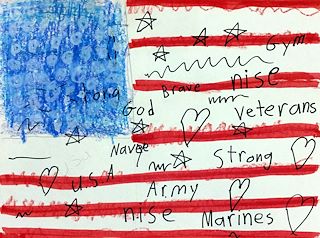 Gym
Brave nise
Strong God Veterans
Navye
Strong
USA
Army
nise Marines